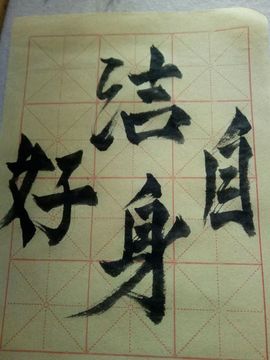 洁身
自
好